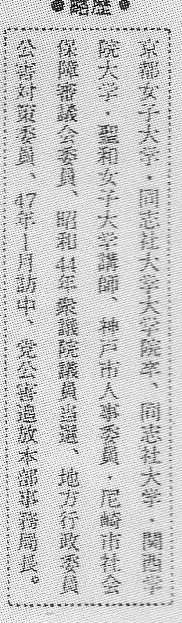 ●略歴●
京都女子大学・同志社大学大学院卒、同志社大学・関西学
院大学・聖和女子大学講師、神戸市人事委員・尼崎市社会
保障審議会委員、昭和44年衆議院議員当選、地方行政委員
公害対策委員、47年1月訪中、党公害追放本部事務局長。